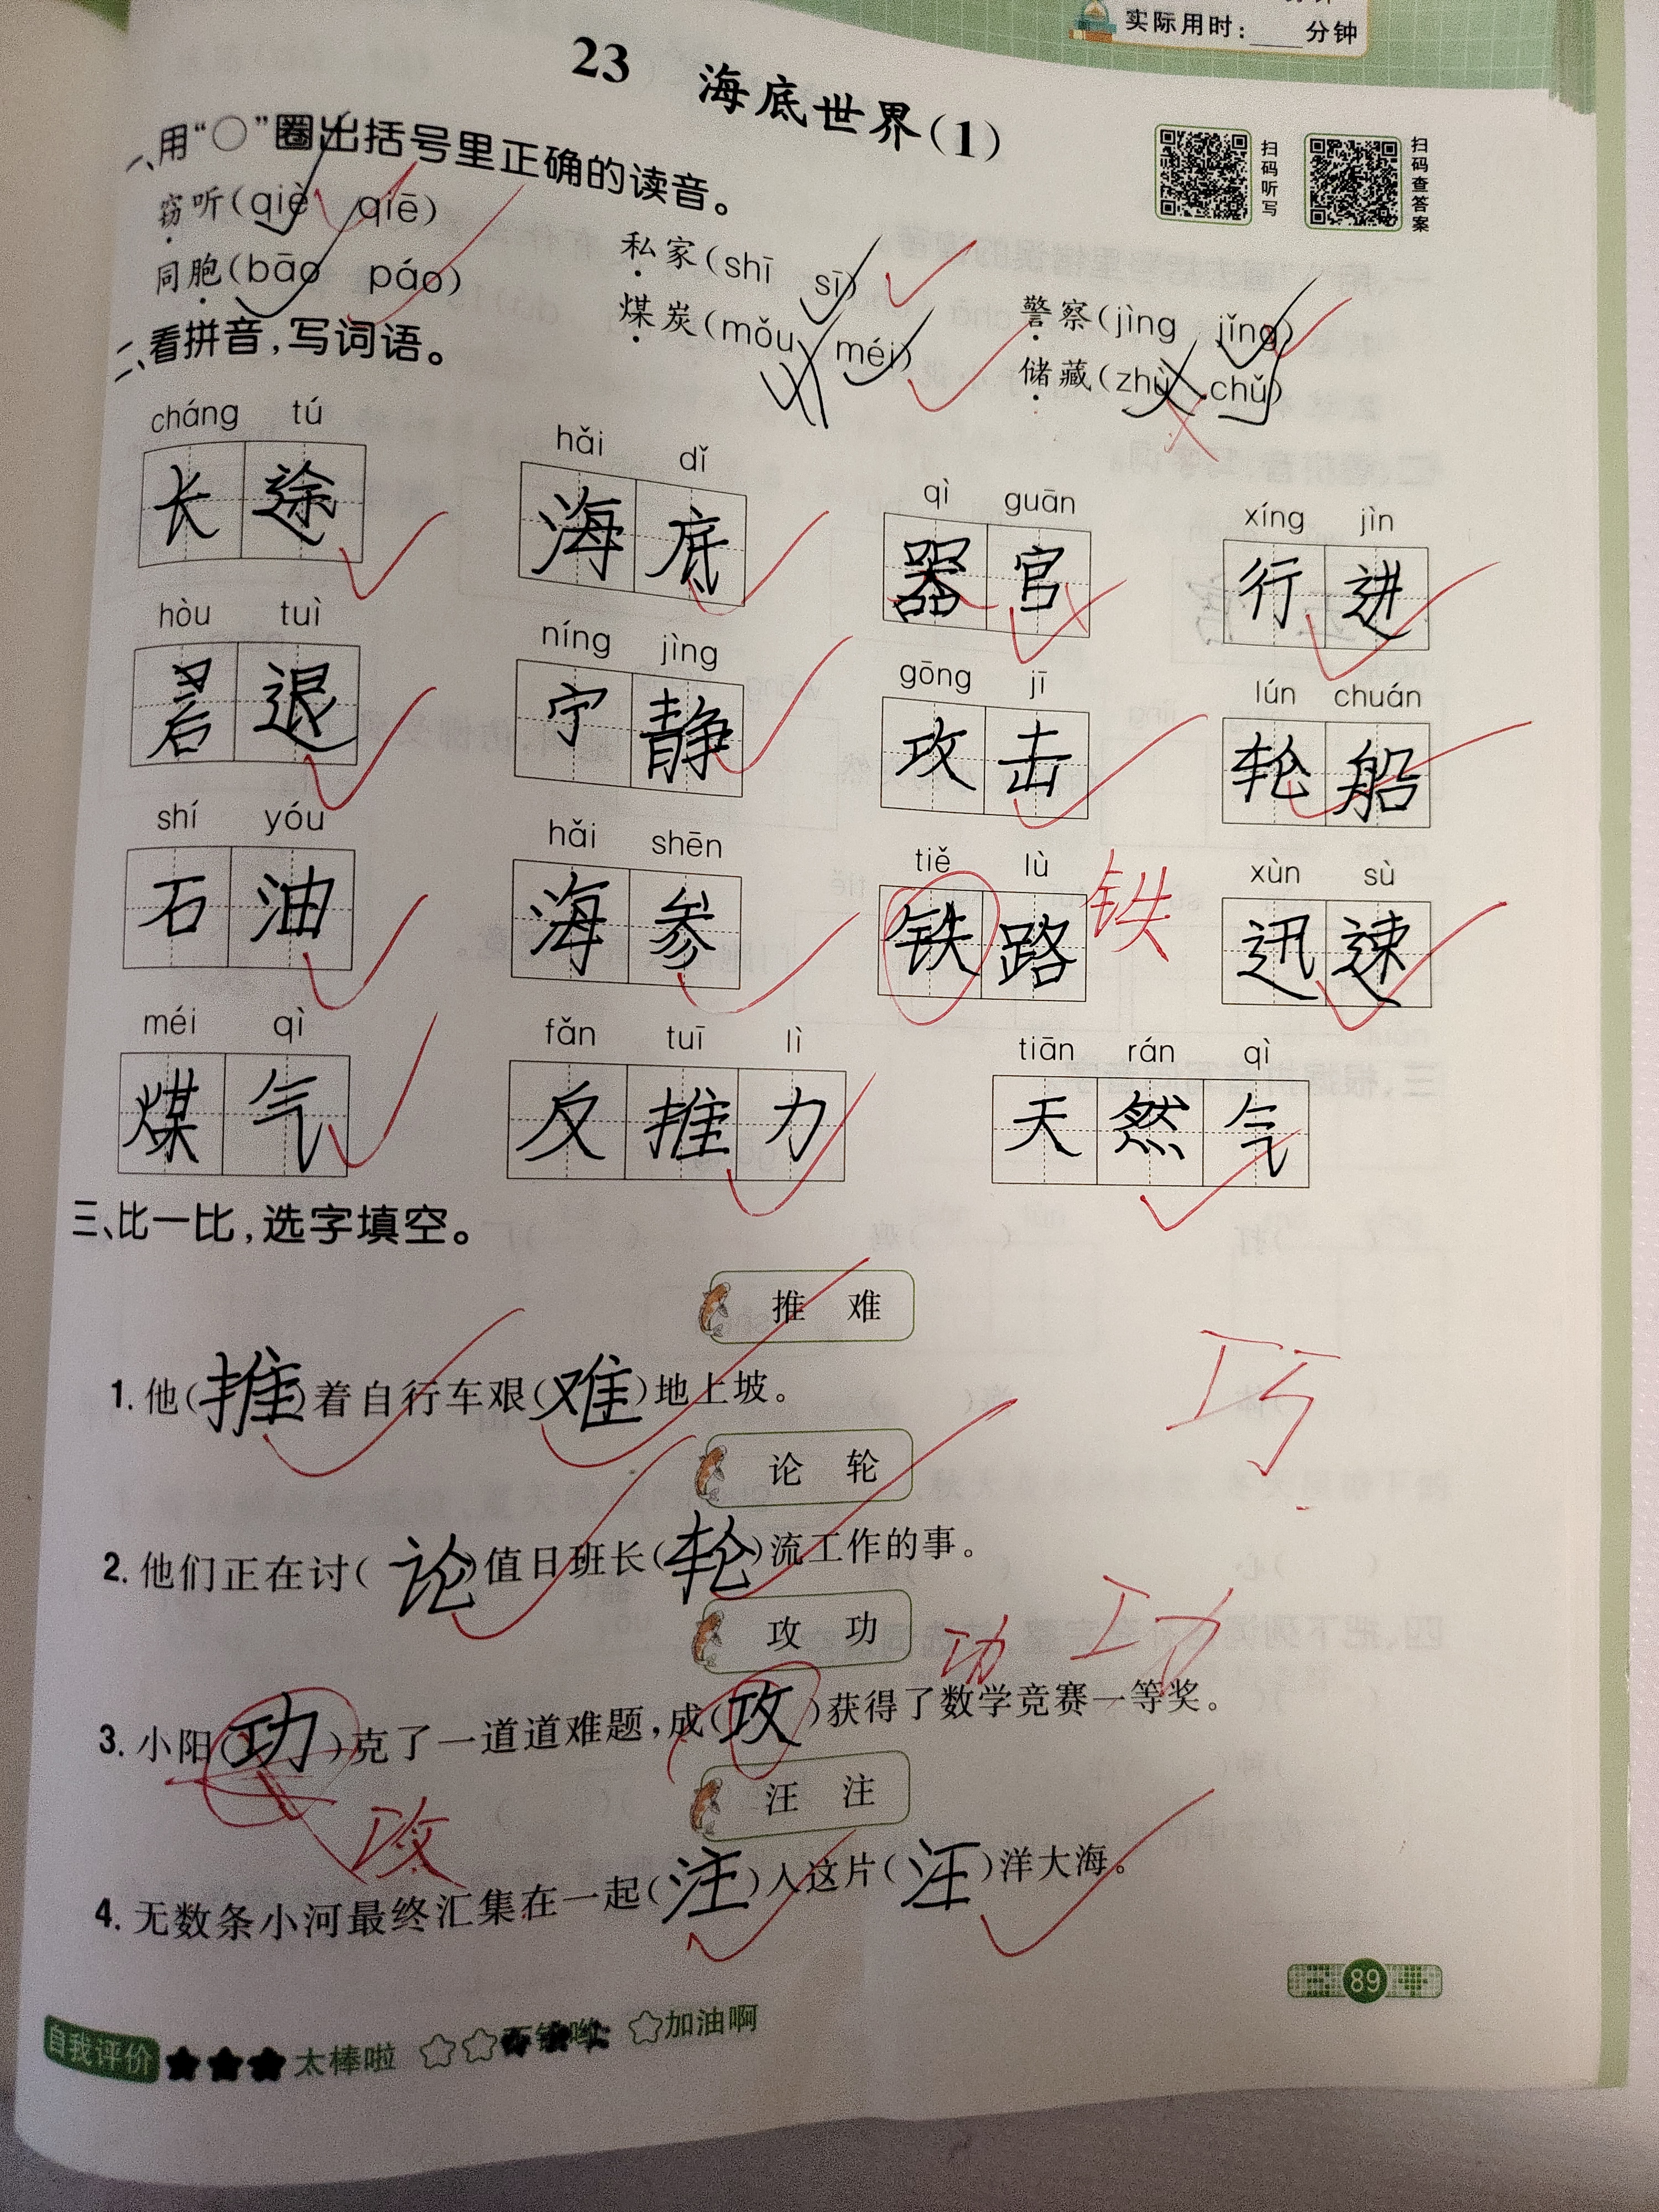 实际用时：____分钟
23 海底世界(1)
扫码听写
扫码查答案
一、用“○”圈出括号里正确的读音。
窃听(qiè qiē) 私家(shī sī) 警察(jìng jǐng)
同胞(bāo páo) 煤炭(mǒu méi) 储藏(zhù chǔ)
二、看拼音，写词语。
cháng tú hǎi dǐ qì guān xíng jìn
长途 海底 器官 行进
hòu tuì níng jìng gōng jī lún chuán
退 宁静 攻击 轮船
shí yóu hǎi shēn tiě lù xùn sù
石油 海参 铁路 铁 迅速
méi qì fǎn tuī lì tiān rán qì
煤气 反推力 天然气
三、比一比，选字填空。
推 难
1. 他(推)着自行车艰(难)地上坡。
巧
论 轮
2. 他们正在讨(论)值日班长(轮)流工作的事。
攻 功
功 功
3. 小阳(功)克了一道道难题，成(攻)获得了数学竞赛一等奖。
攻
汪 注
4. 无数条小河最终汇集在一起(注)入这片(汪)洋大海。
89
自我评价 ★★★太棒啦 ☆☆ ☆加油啊